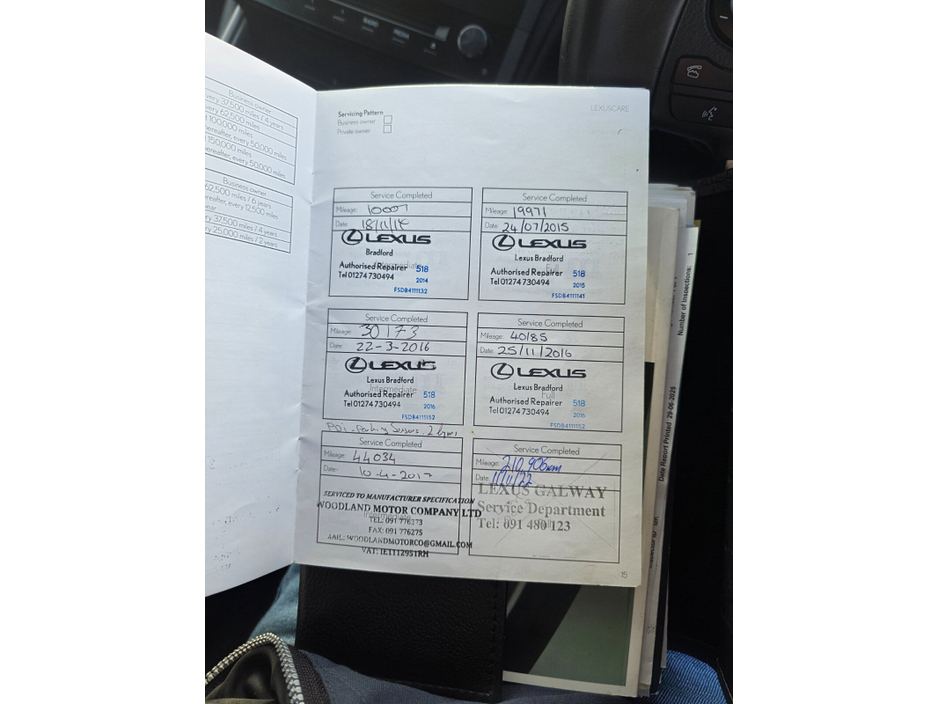 RADIO
MEDIA
Business owner
every 37,500 miles / 4 years
every 62,500 miles
100,000 miles
thereafter, every 50,000 miles
150,000 miles
thereafter, every 50,000 miles
Business owner
62,500 miles / 6 years
thereafter, every 12,500 miles
year
every 37,500 miles / 4 years
every 25,000 miles / 2 years
Servicing Pattern
Business owner
Private owner
LEXUSCARE
Service Completed
Mileage: 10007
Date: 18/11/14
LEXUS
Bradford
Intermediate
Authorised Repairer 518
Tel 01274 730494 2014
FSDB4111132
Service Completed
Mileage: 19971
Date: 24/07/2015
LEXUS
Lexus Bradford
Full
Authorised Repairer 518
Tel 01274 730494 2015
FSDB4111141
Service Completed
Mileage: 30173
Date: 22-3-2016
LEXUS
Lexus Bradford
Intermediate
Authorised Repairer 518
Tel 01274 730494 2016
FSDB4111152
Service Completed
Mileage: 40185
Date: 25/11/2016
LEXUS
Lexus Bradford
Full
Authorised Repairer 518
Tel 01274 730494 2016
FSDB4111152
Service Completed
Mileage: 44034
Date: 10-4-2017
SERVICED TO MANUFACTURER SPECIFICATION
WOODLAND MOTOR COMPANY LTD
Intermediate
TEL: 091 776173
FAX: 091 776275
MAIL: WOODLANDMOTORCO@GMAIL.COM
VAT: IE1112951RH
Service Completed
Mileage: 210,906km
Date: 1/11/22
LEXUS GALWAY
Service Department
Tel: 091 480 123
15
Number of Inspections: 1
Date Report Printed 29-06-2025